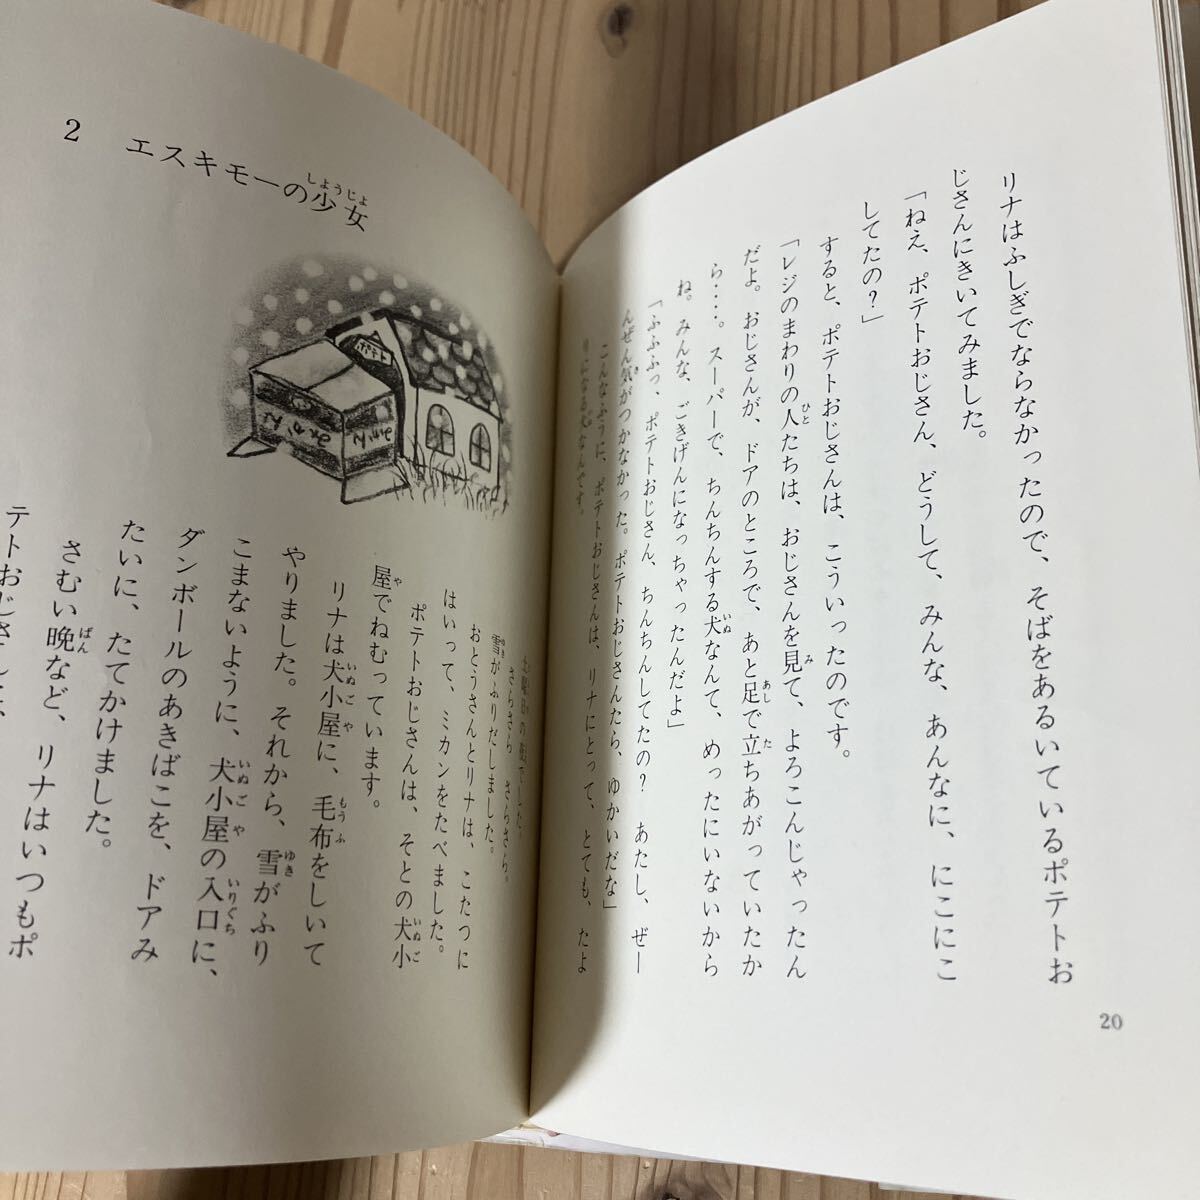 リナはふしぎでならなかったので、そばをあるいているポテトお
じさんにきいてみました。
「ねえ、ポテトおじさん、どうして、みんな、あんなに、にこにこ
してたの？」
すると、ポテトおじさんは、こういったのです。
「レジのまわりの人たちは、おじさんを見て、よろこんじゃったん
だよ。おじさんが、ドアのところで、あと足で立ちあがっていたか
ら‥‥。スーパーで、ちんちんする犬なんて、めったにいないから
ね。みんな、ごきげんになっちゃったんだよ」
「ふふふっ、ポテトおじさん、ちんちんしてたの？　あたし、ぜー
んぜん気がつかなかった。ポテトおじさんたら、ゆかいだな」
こんなふうに、ポテトおじさんは、リナにとって、とても、たよ
りになる犬なんです。
20
2　エスキモーの少女
しょうじょ
ポテト
みかん
みかん
土曜日の夜でした。
さらさら　さらさら。
雪がふりだしました。
おとうさんとリナは、こたつに
はいって、ミカンをたべました。
ポテトおじさんは、そとの犬小
屋でねむっています。
リナは犬小屋に、毛布をしいて
やりました。それから、雪がふり
こまないように、犬小屋の入口に、
ダンボールのあきばこを、ドアみ
たいに、たてかけました。
さむい晩など、リナはいつもポ
テトおじさんに、